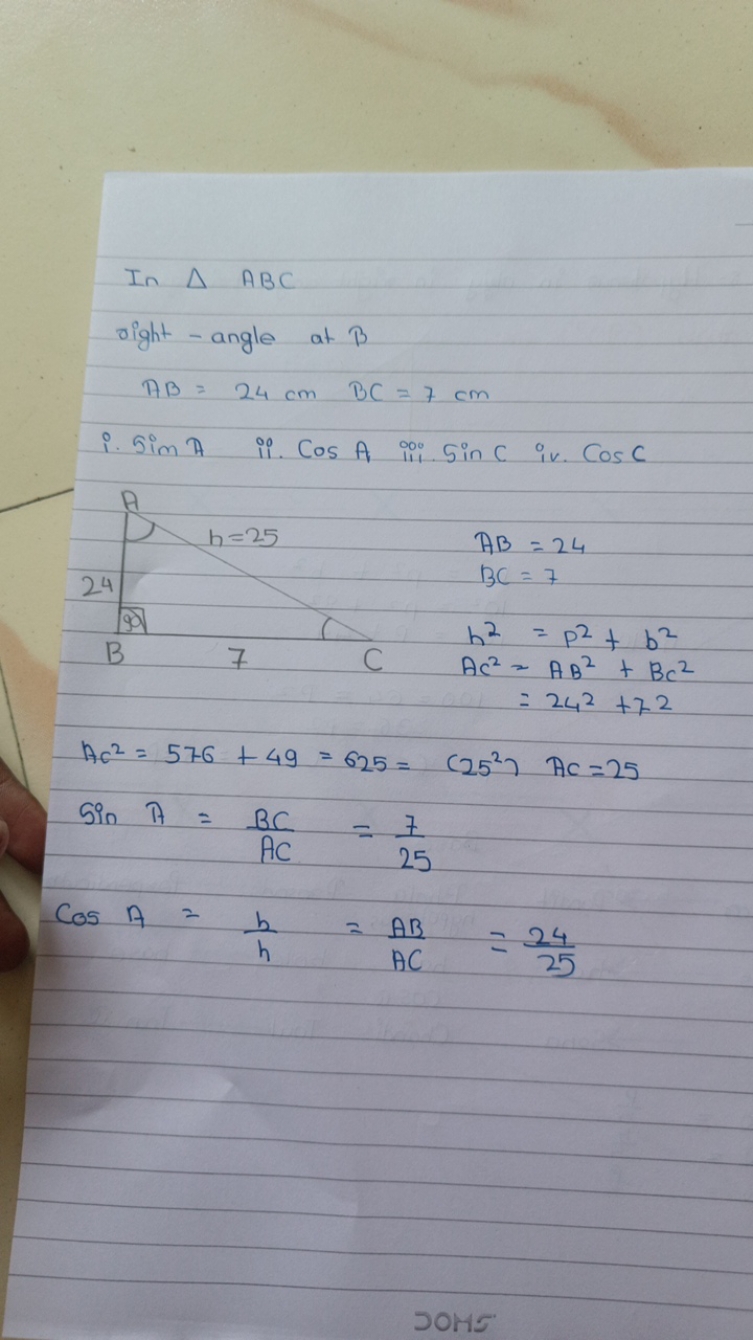 In Δ ABC
right - angle at B
AB = 24 cm BC = 7 cm
i. Sin A ii. Cos A iii. Sin C iv. Cos C
A
h=25
24
90
B
7
C
AB = 24
BC = 7
h² = p² + b²
AC² = AB² + BC²
= 24² + 7²
AC² = 576 + 49 = 625 = (25²) AC = 25
Sin A = BC/AC = 7/25
Cos A = b/h = AB/AC = 24/25